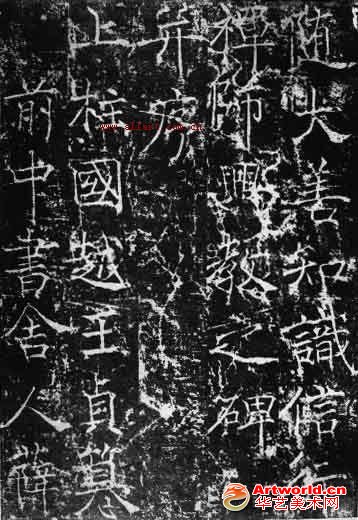 随大善知識信行
禪師興教之碑
并序
上柱國越王貞
前中書舍人薛
Artworld.cn
华艺美术网